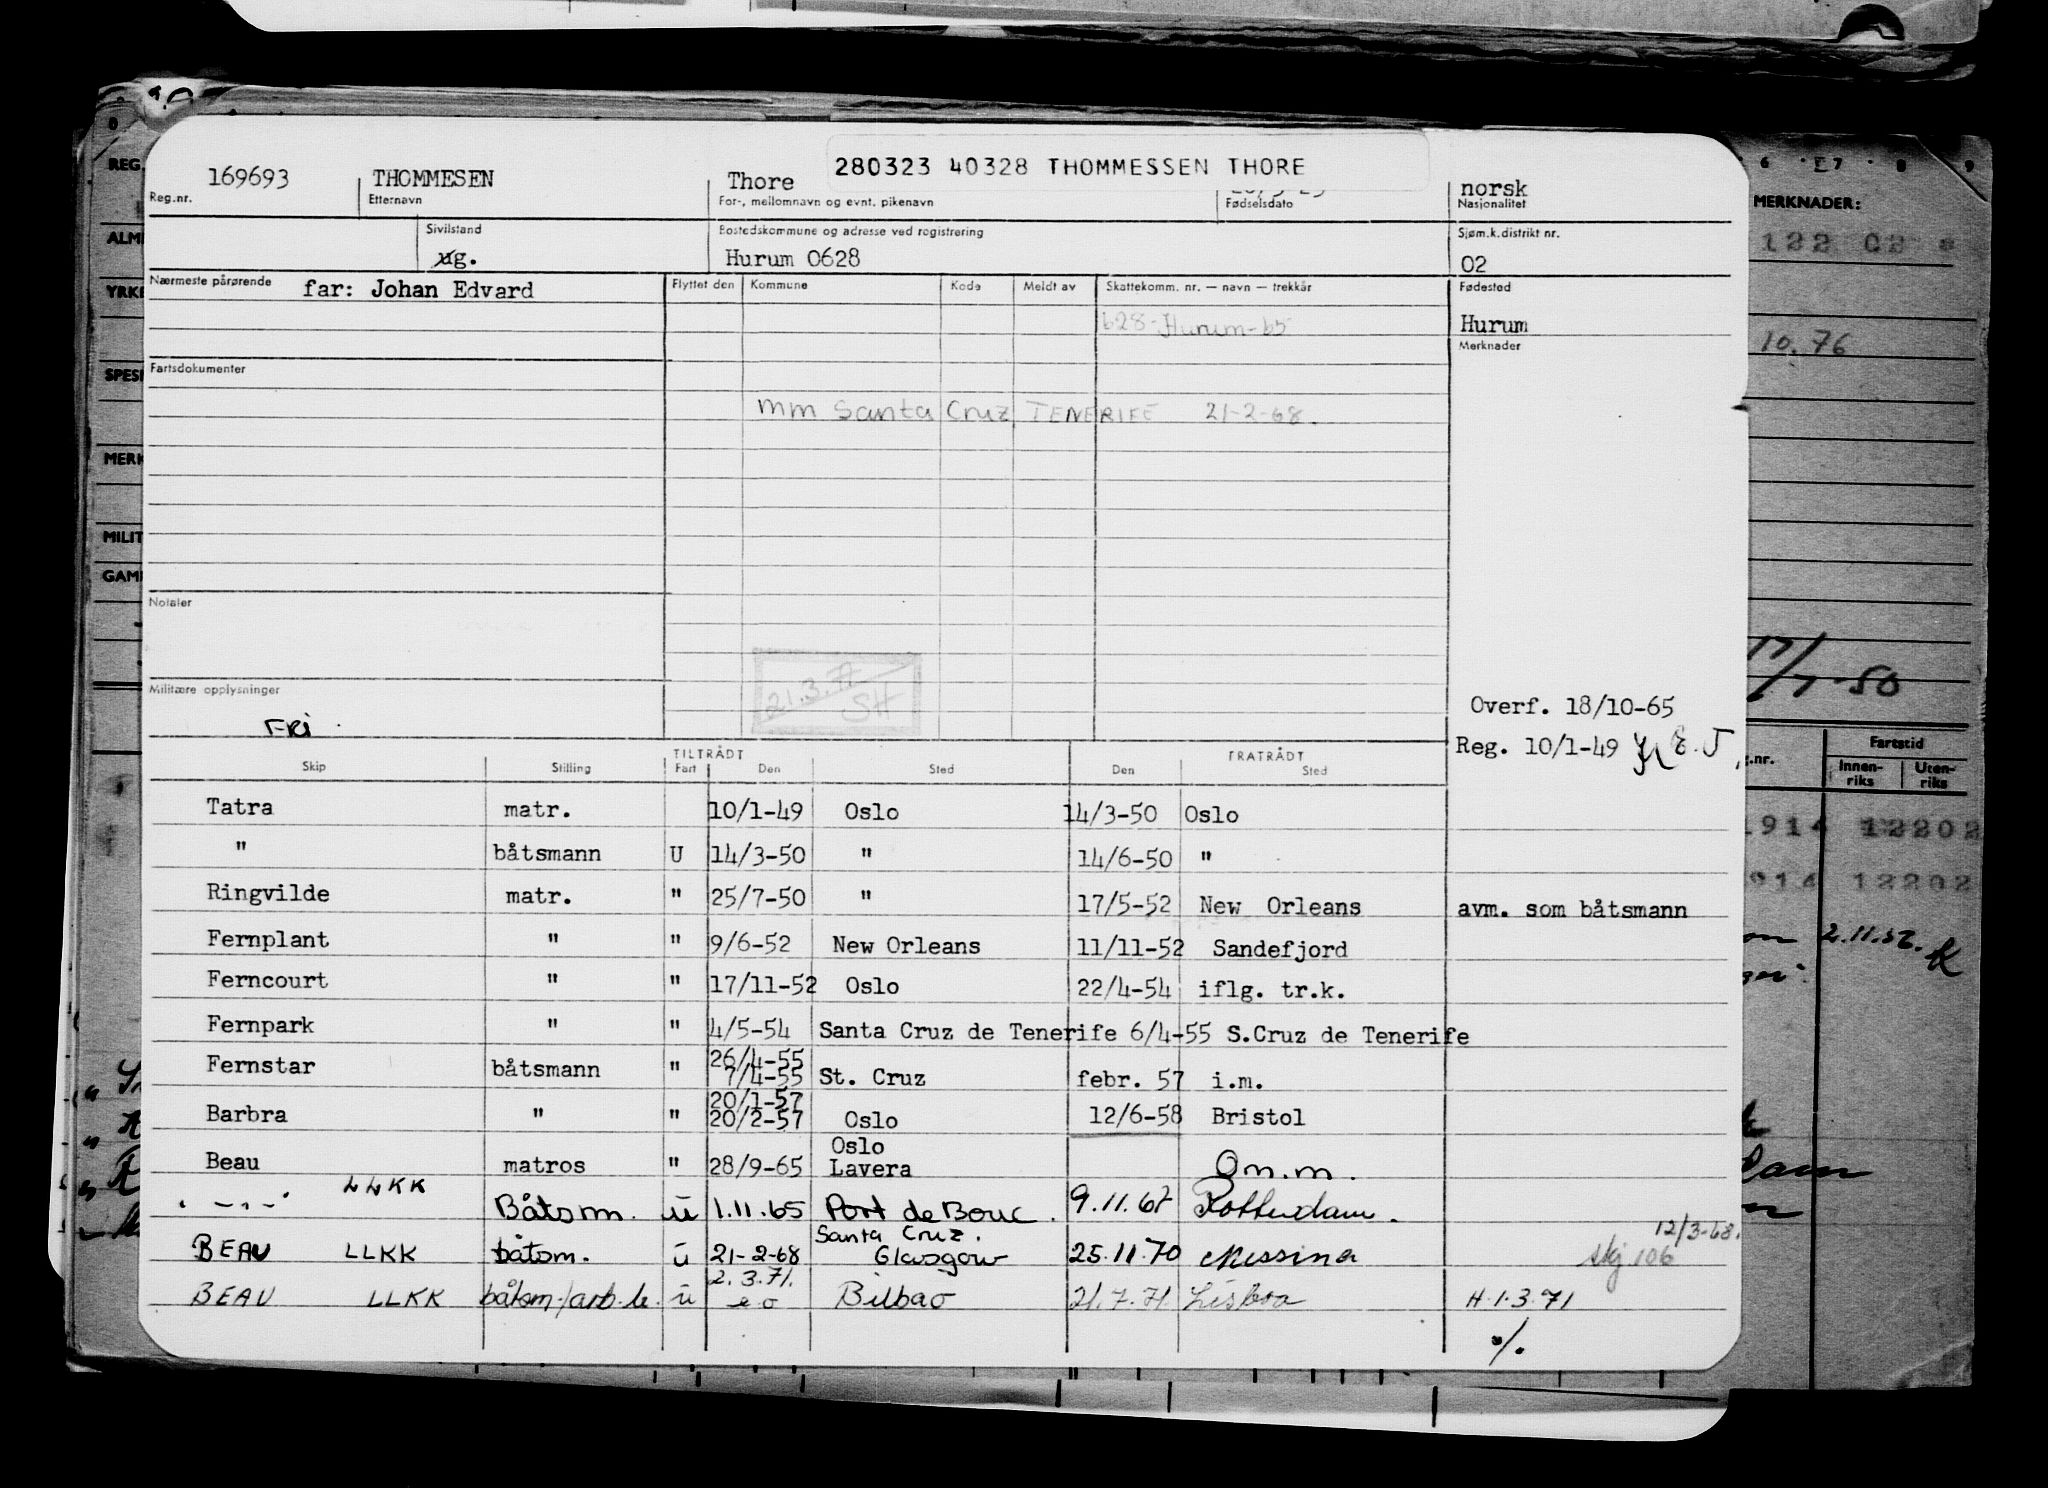 280323 40328 THOMMESSEN THORE
169693 THOMMESEN Thore norsk
Reg.nr. Etternavn For-, mellomnavn og evnt. pikenavn Fødselsdato Nasjonalitet
Sivilstand Bostedskommune og adresse ved registrering Sjøm.k.distrikt nr.
ug. Hurum 0628 02
Nærmeste pårørende far: Johan Edvard Flyttet den Kommune Kode Meldt av Skattekomm. nr. — navn — trekkår Fødested
628-Hurum-65 Hurum
Merknader
Fartsdokumenter
mm Santa Cruz TENERIFE 21-2-68.
Notater
21.3.77
SH
Militære opplysninger
FRI
Overf. 18/10-65
Reg. 10/1-49
TILTRÅDT FRATRÅDT
Skip Stilling Fart Den Sted Den Sted
Tatra matr. 10/1-49 Oslo 14/3-50 Oslo
" båtsmann U 14/3-50 " 14/6-50 "
Ringvilde matr. " 25/7-50 " 17/5-52 New Orleans avm. som båtsmann
Fernplant " " 9/6-52 New Orleans 11/11-52 Sandefjord
Ferncourt " " 17/11-52 Oslo 22/4-54 iflg. tr.k.
Fernpark " " 4/5-54 Santa Cruz de Tenerife 6/4-55 S.Cruz de Tenerife
26/4-55
Fernstar båtsmann " 7/4-55 St. Cruz febr. 57 i.m.
20/1-57
Barbra " " 20/2-57 Oslo 12/6-58 Bristol
Oslo
Beau matros " 28/9-65 Lavera Om.m.
" - " - " LLKK Båtsm. u 1.11.65 Port de Bouc. 9.11.67 Rotterdam.
Santa Cruz. 12/3-68.
BEAU LLKK båtsm. u 21-2-68 Glasgow 25.11.70 Messina skj 106
2.3.71.
BEAU LLKK båtsm./arb.le. u e o Bilbao 21.7.71 Lisboa H.1.3.71
•/.
REG.
ALM
YRKE
SPESI
MERK
MILIT
GAM
6 7 8 9
MERKNADER:
122 02
10.76
17/7-50
.nr. Fartstid
Innen-riks Uten-riks
1914 12202
914 12202
2.11.56.